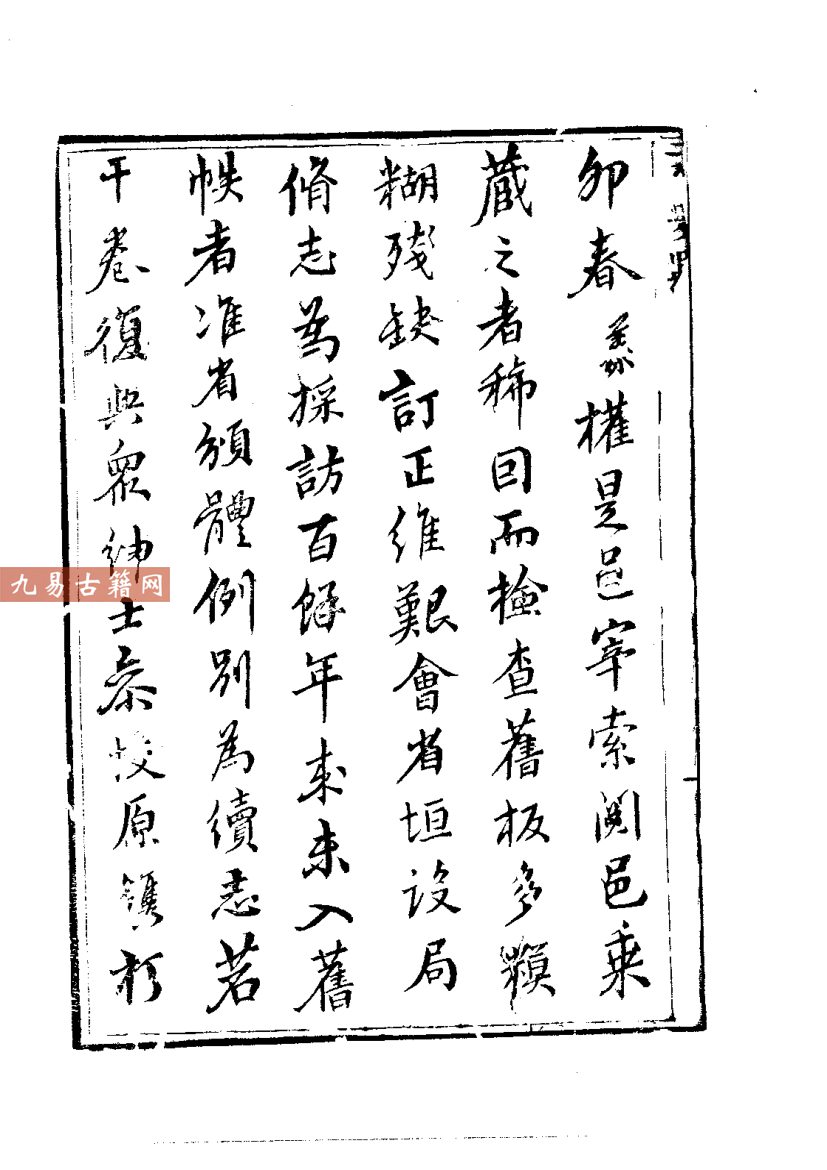 卯春羕權是邑宰索閱邑乗
藏之者稀因而檢查舊板多糢
糊殘缺訂正維艱會省垣設局
脩志爲採訪百餘年來未入舊
帙者准省頒體例別為續志若
干卷復與衆紳士叅校原鐫於
九易古籍网